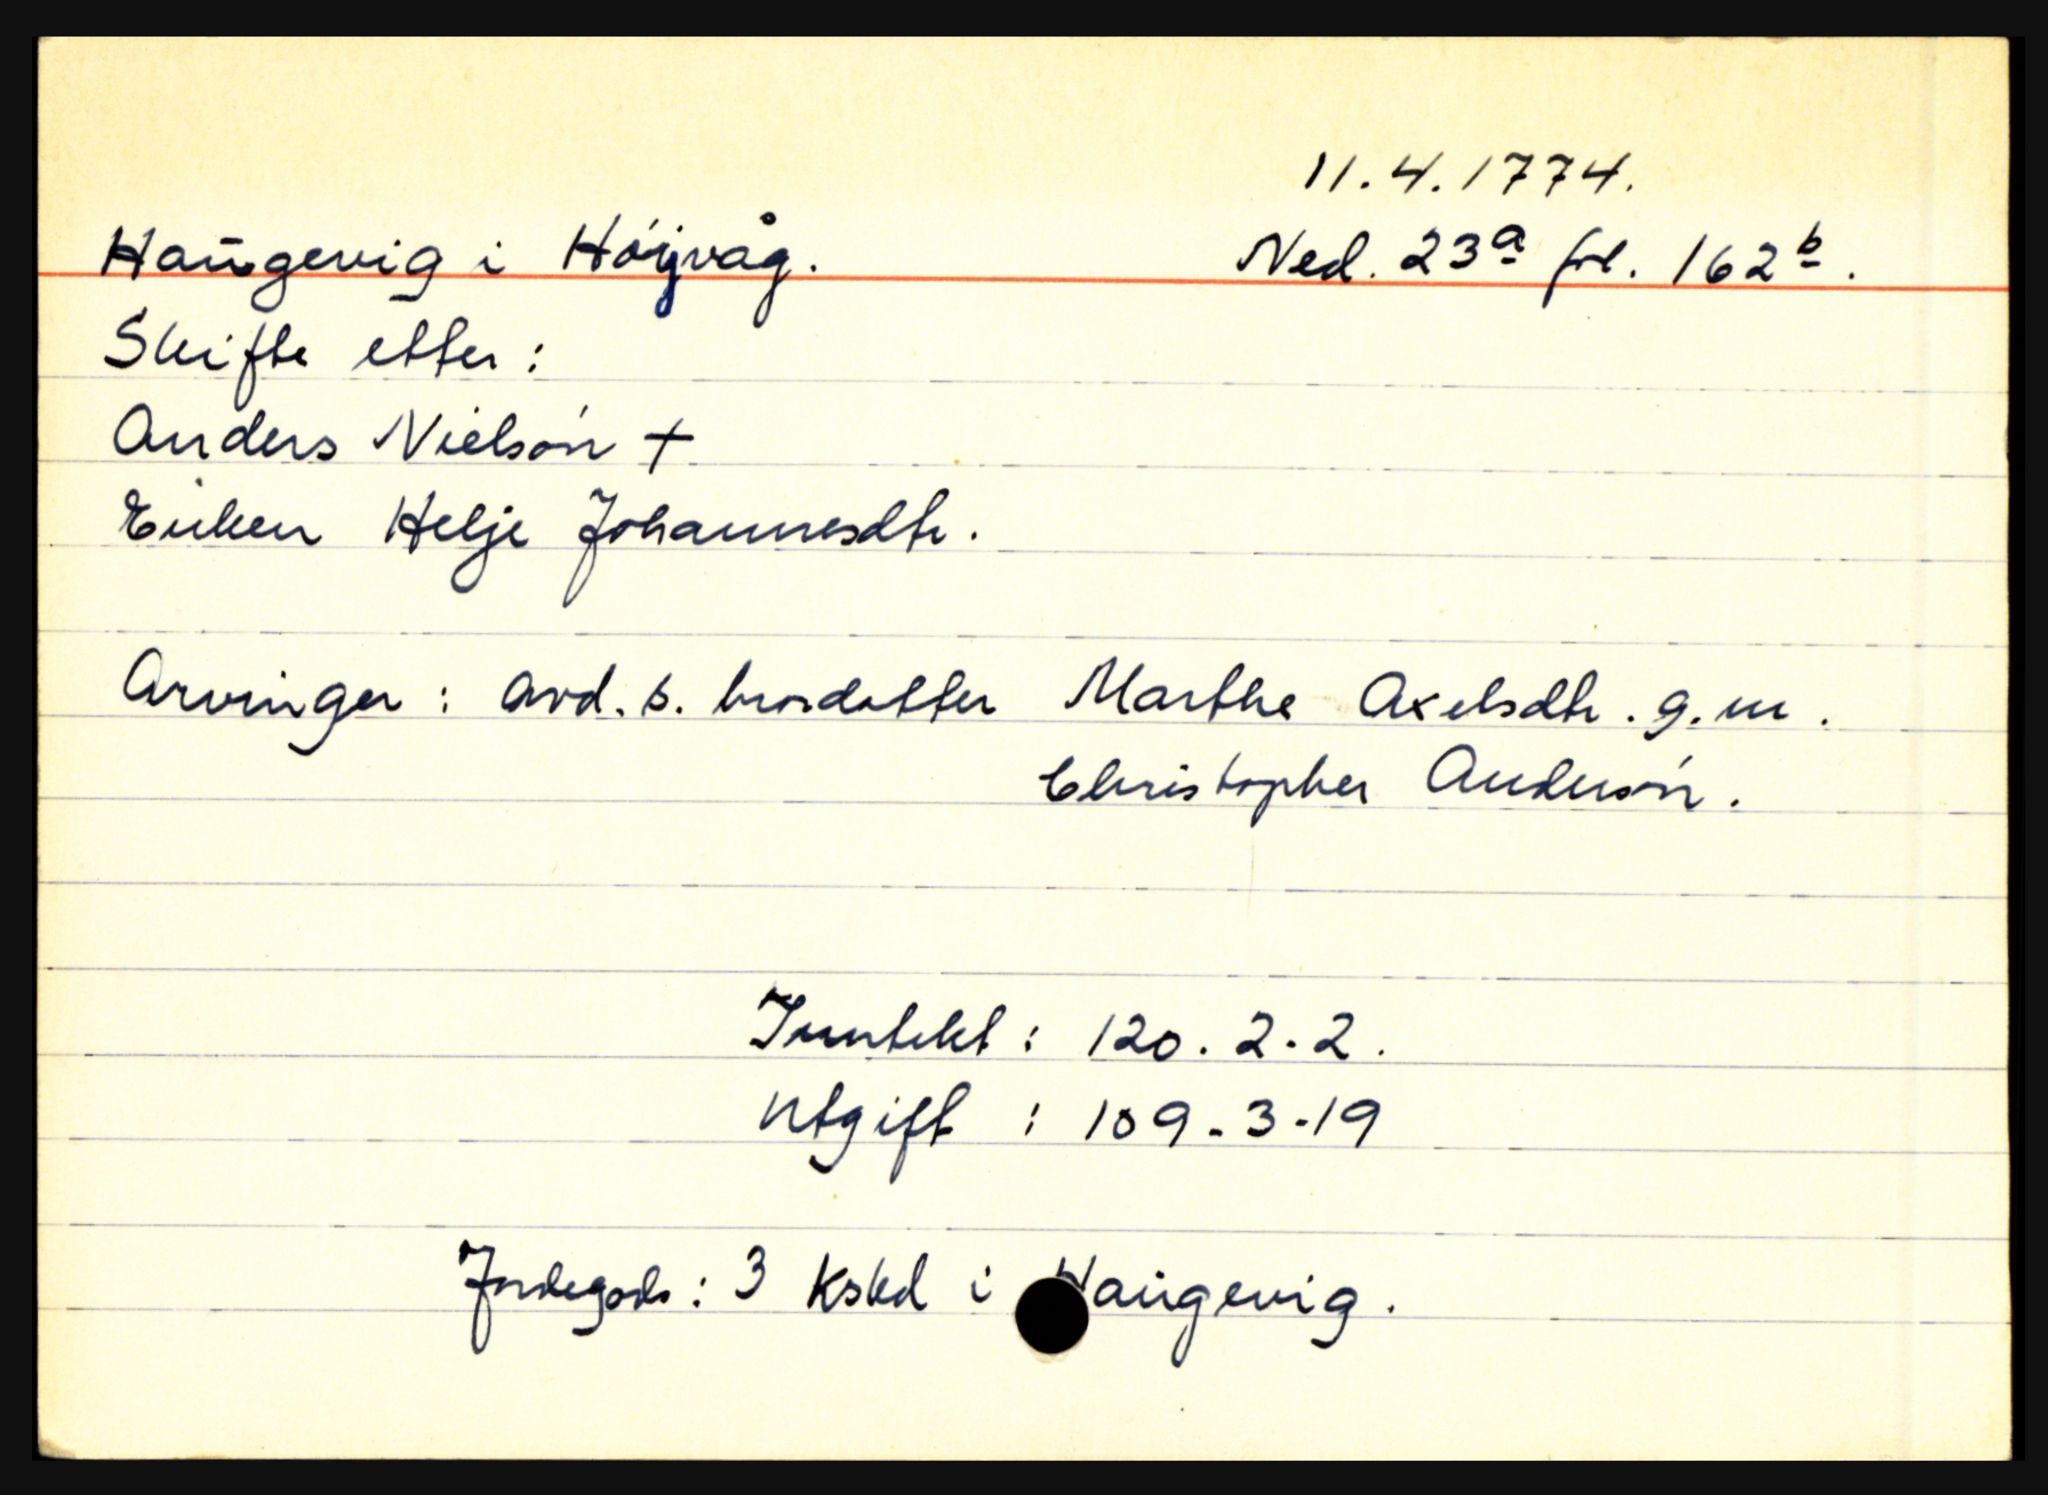 11.4.1774.
Haugevig i Höyvåg. Ned. 23a fol. 162b.
Skifte etter:
Anders Nielsön +
Enken Helje Johannesdtr.
Arvinger: avd. s. brordatter Marthe Axelsdtr. g.m.
Christopher Andersön.
Inntekt: 120.2.2.
Utgift : 109-3-19
Jordegods: 3 Kskd i Haugevig.